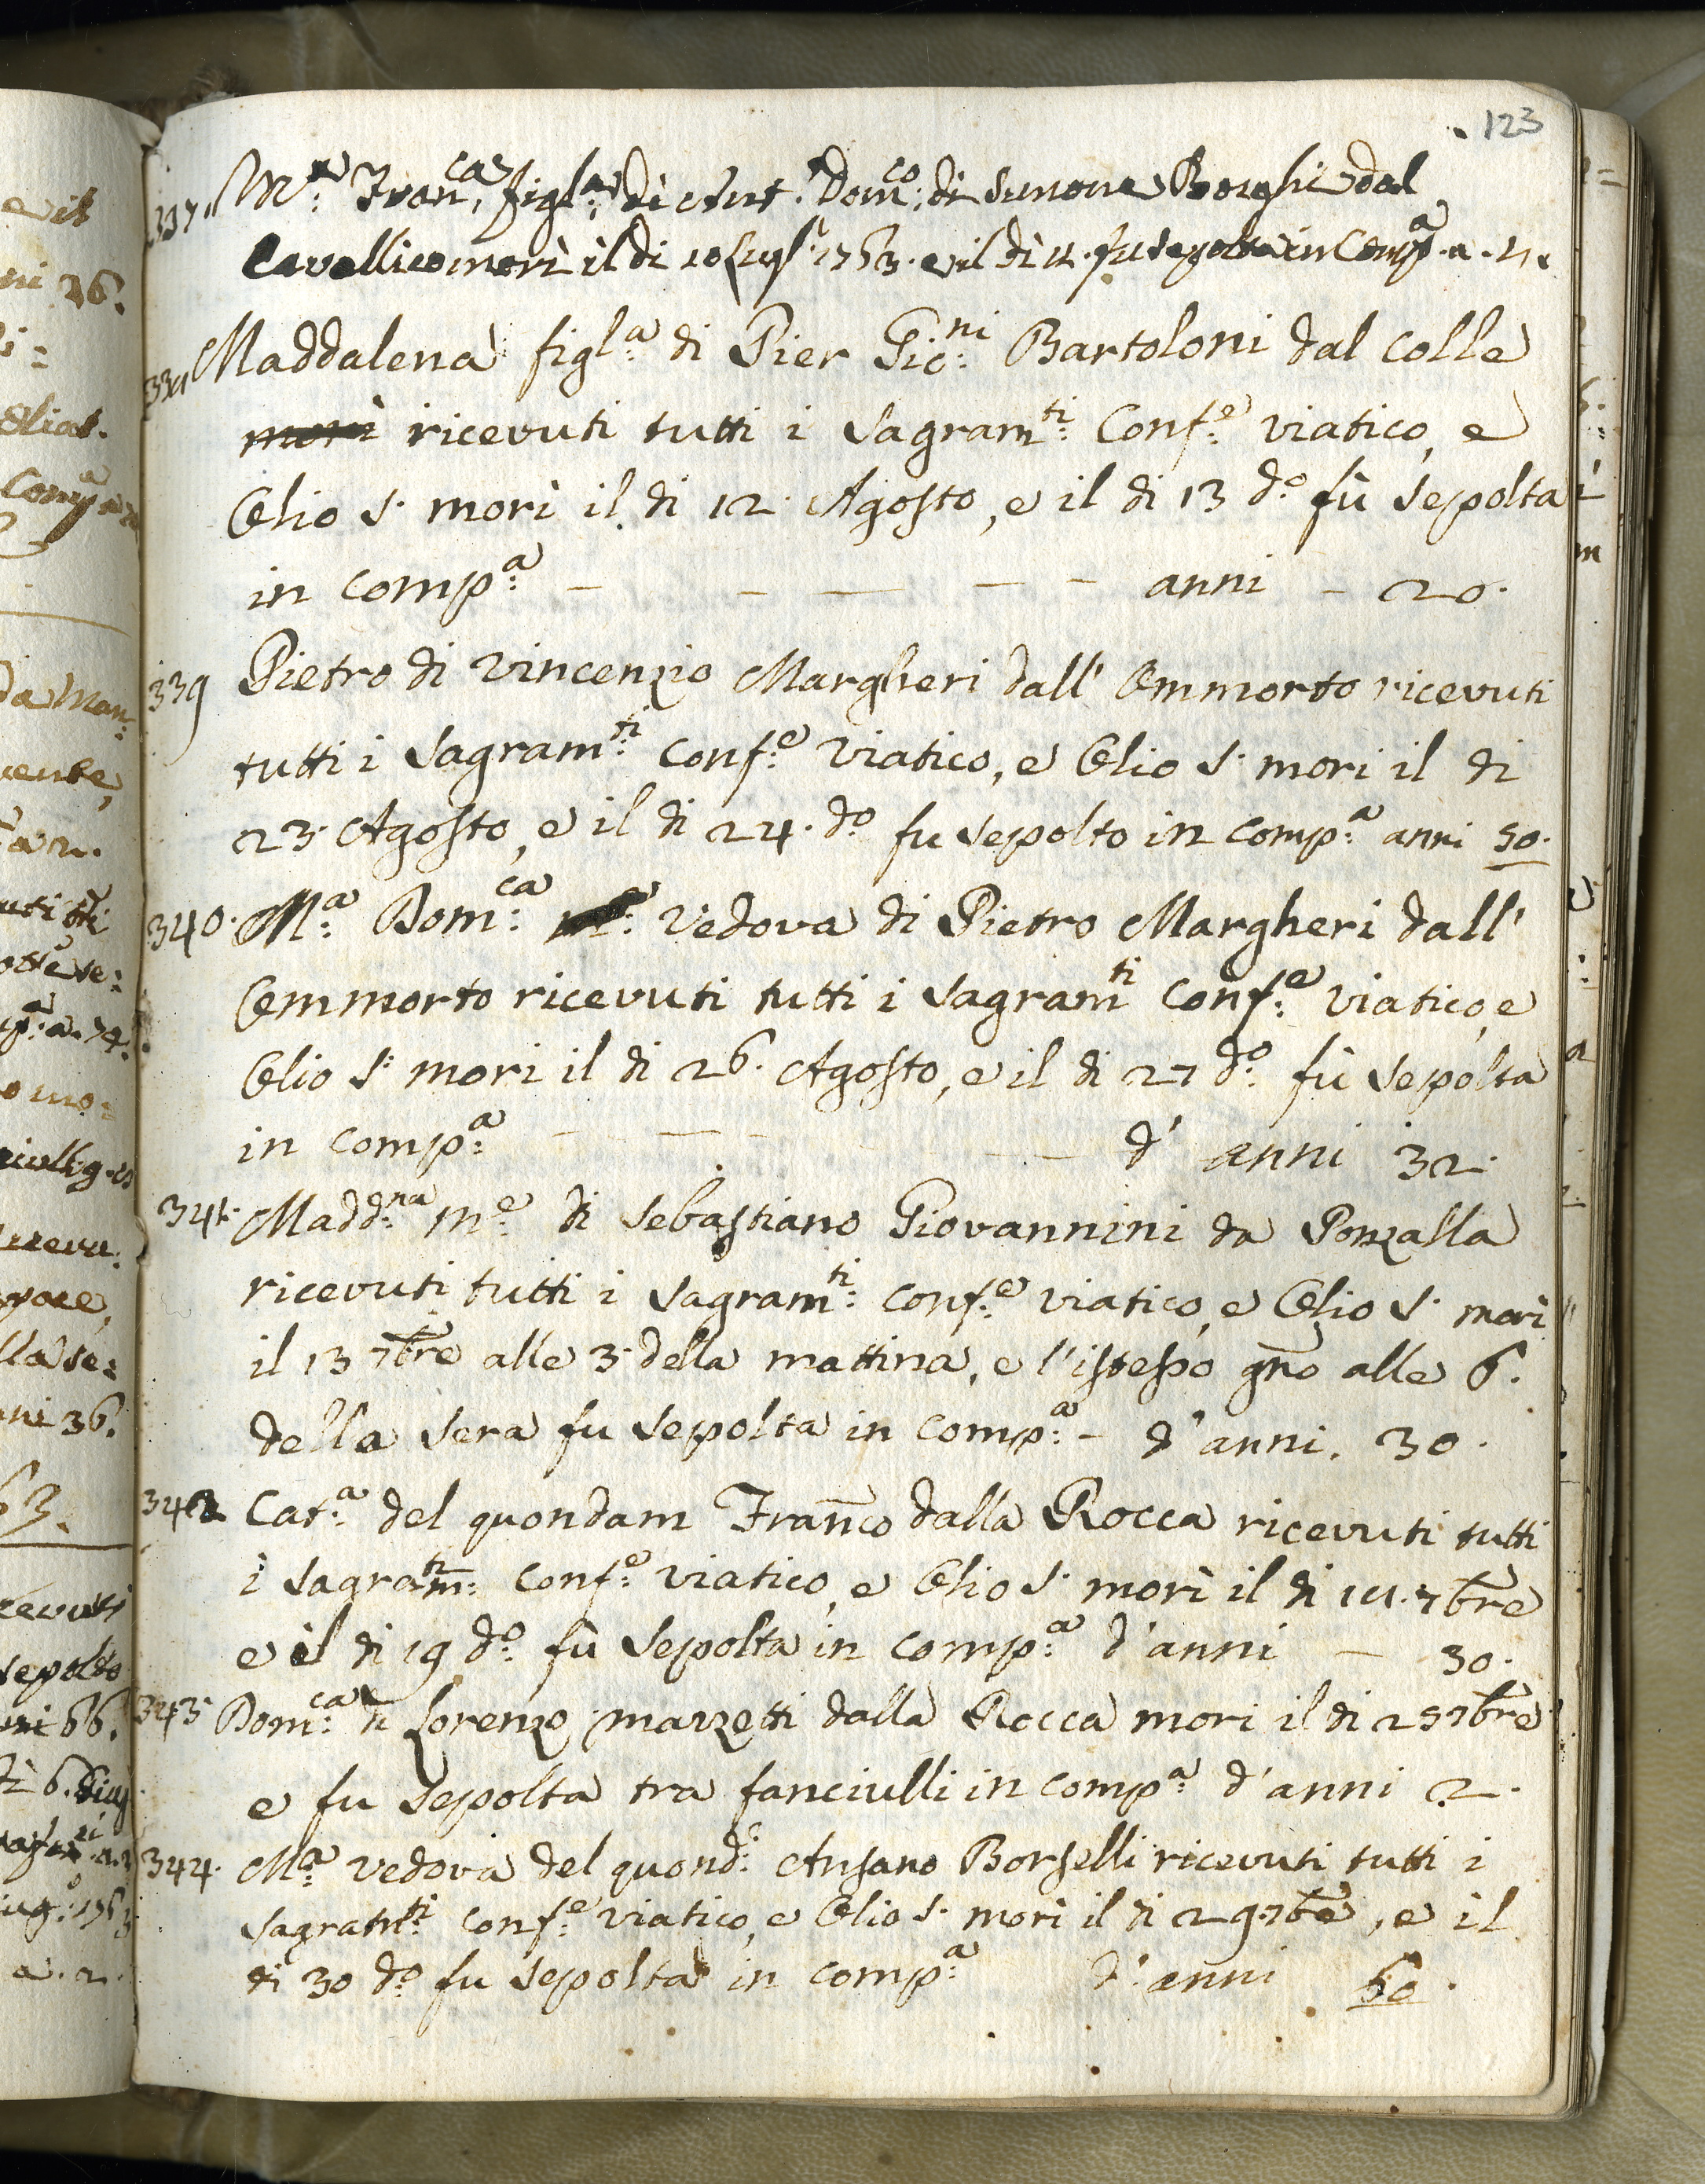 123
337. M.a Fran.ca figl.a di Ant. Dom.co di Simone Borghi dal
Cavallico morì il di 10 Lugl. 1763. e il dì 11. fu sepolta in Comp.a a.
338 Maddalena figl.a di Pier Gio.ni Bartoloni dal Colle
morì ricevuti tutti i Sagram.ti Conf.e viatico, e
Olio S. morì il di 12. Agosto, e il di 13 d.o fù sepolta
in comp.a - - - - - anni - 20.
339 Pietro di Vincenzio Margheri dall' Ommorto ricevuti
tutti i Sagram.ti Conf.e Viatico, e Olio S. mori il di
23. Agosto, e il di 24. d.o fu sepolto in comp.a anni 50.
340. M.a Dom.ca Vedova di Pietro Margheri dall'
Ommorto ricevuti tutti i Sagram.ti Conf.e viatico, e
Olio S. mori il di 26. Agosto, e il di 27 d.o fù sepolta
in comp.a - - - - d' anni 32.
341. Madd.na m.e di Sebastiano Giovannini da Ponzalla
ricevuti tutti i Sagram.ti Conf.e viatico, e Olio S. morì
il 13 7bre alle 3. della mattina, e l'istesso gno alle 6.
della sera fu sepolta in comp.a - d' anni. 30.
342 Cat.a del quondam Franco dalla Rocca ricevuti tutti
i Sagram.ti Conf.e viatico, e Olio S. morì il di 18. 7bre
e il di 19 d.o fù sepolta in comp.a d'anni - 30.
343. Dom.ca di Lorenzo Mazzetti dalla Rocca mori il di 25 7bre
e fu sepolta tra fanciulli in comp.a d'anni 2.
344. M.a vedova del quond. Ansano Borselli ricevuti tutti i
Sagram.ti Conf.e viatico, e Olio S. morì il di 29. 7bre, e il
di 30 d.o fu sepolta in comp.a d' anni 60.